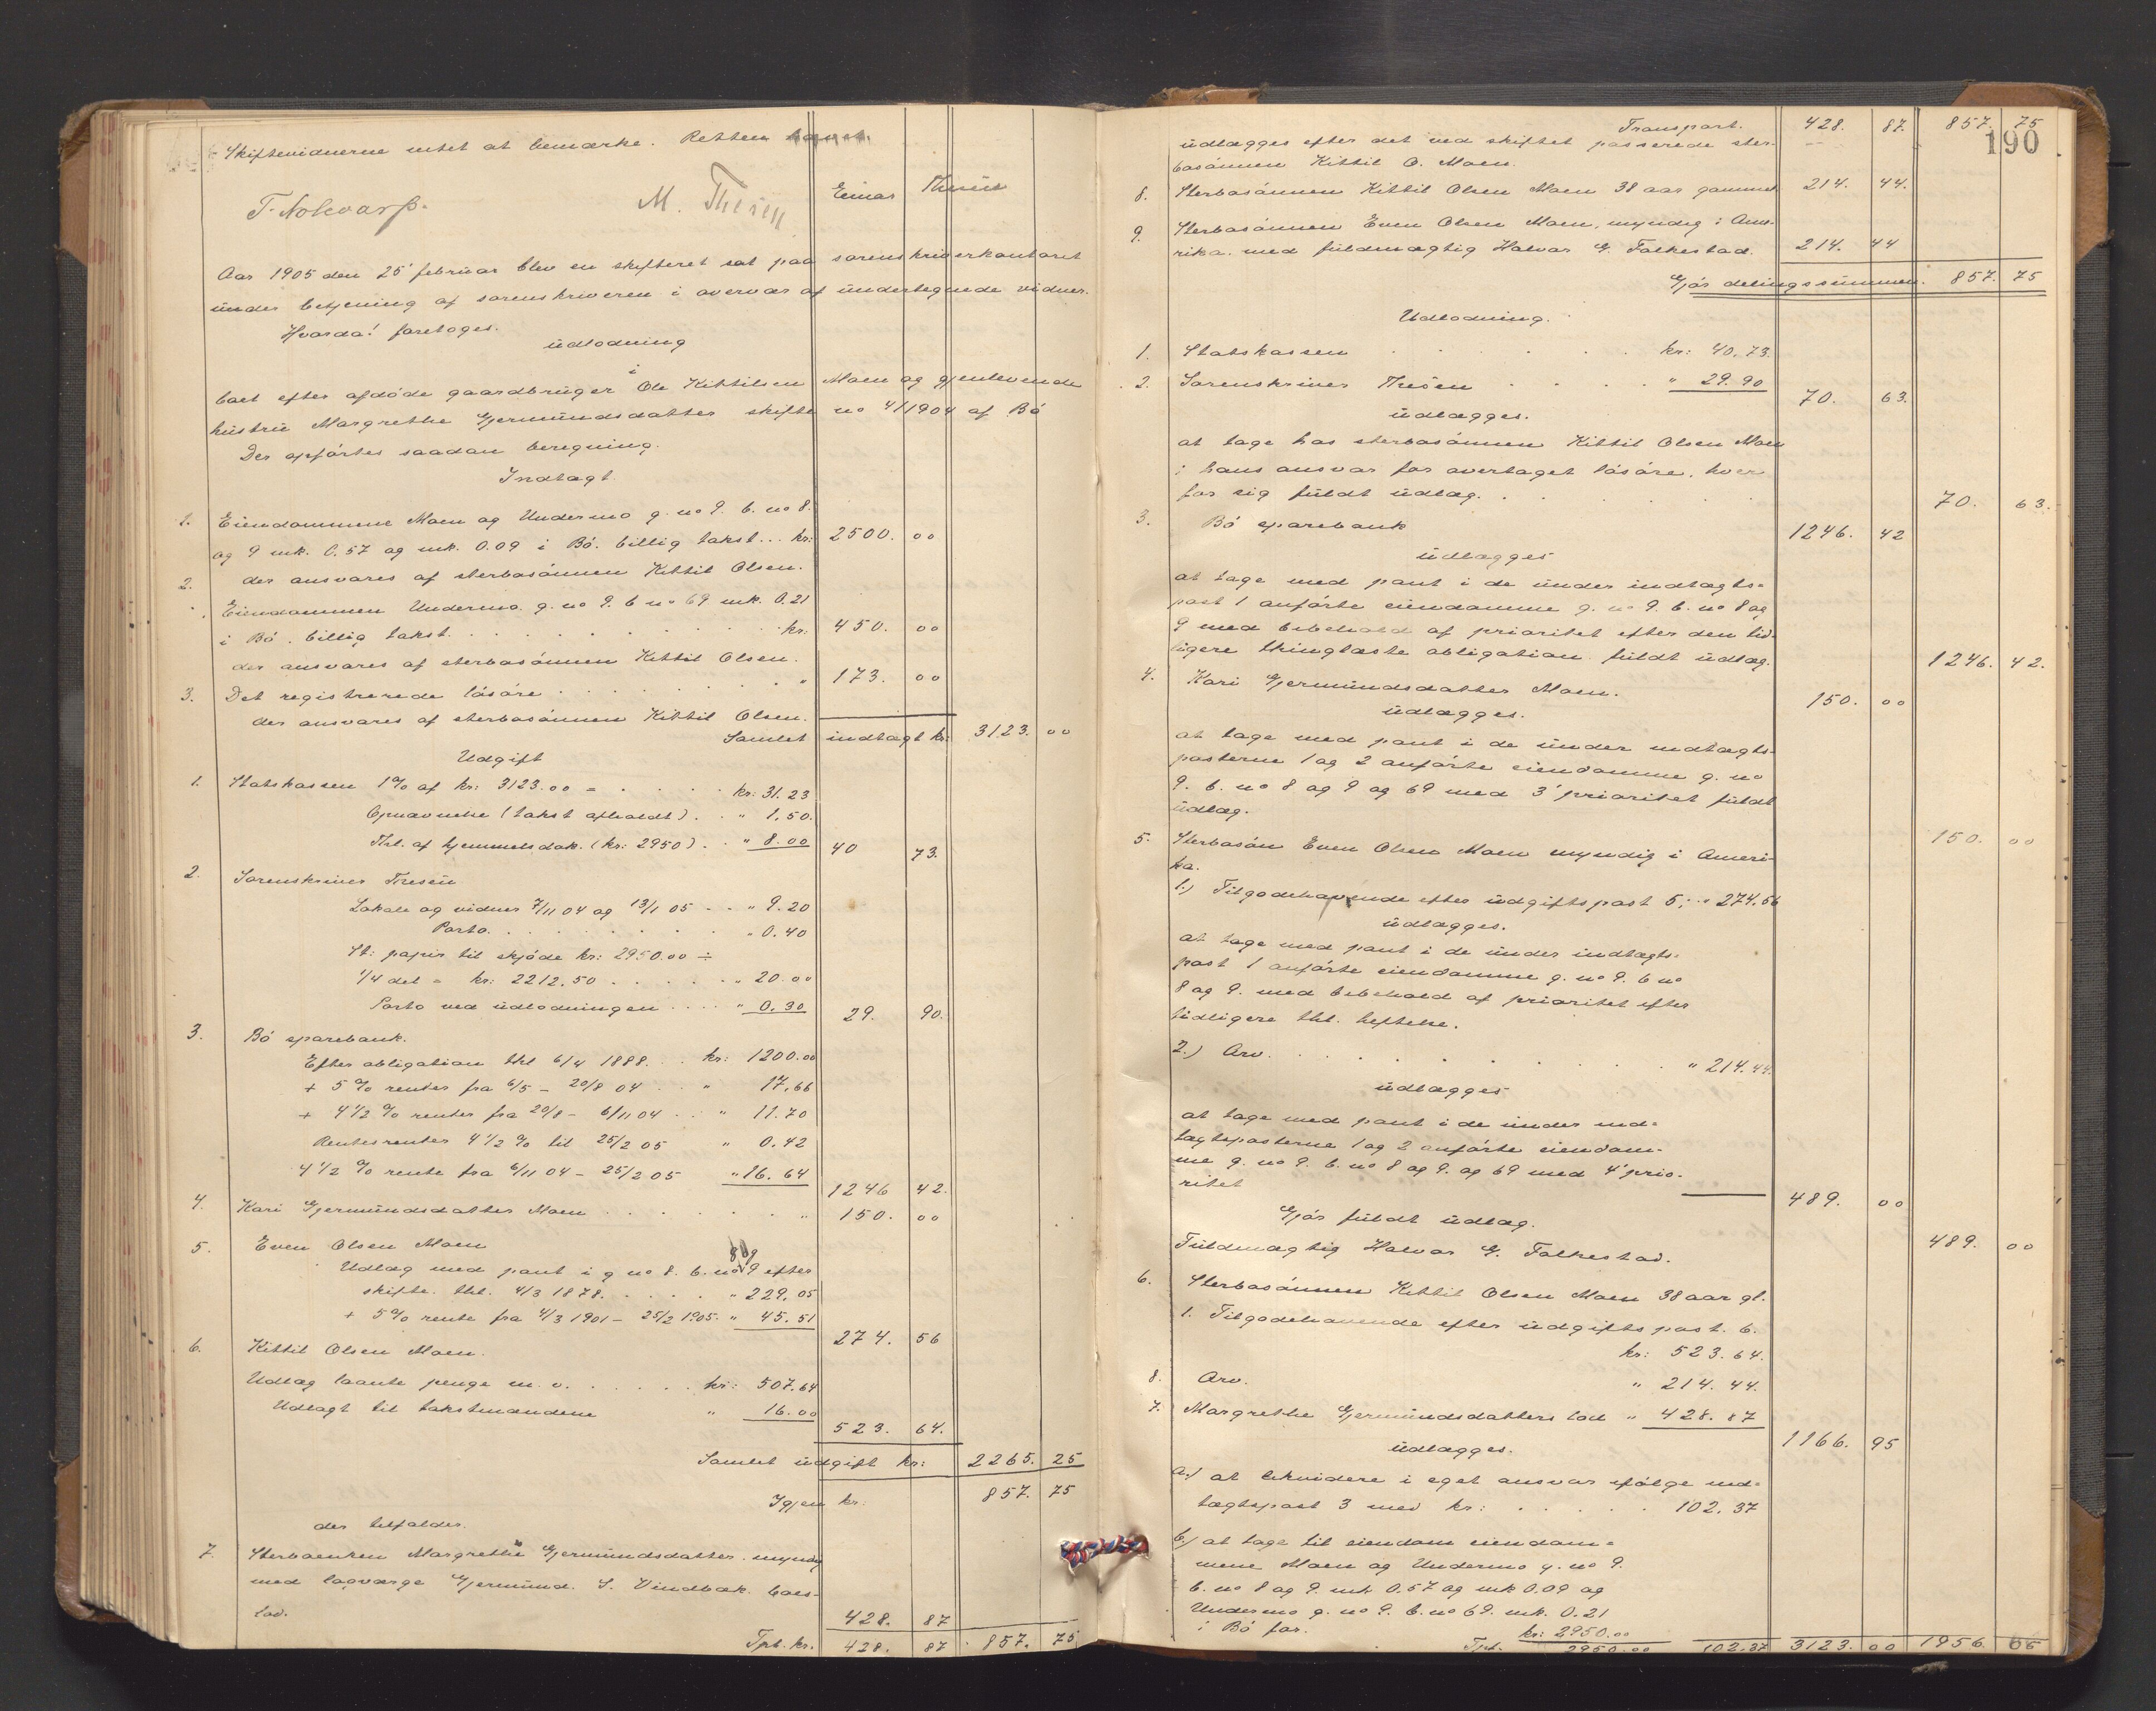 Skiftevidnerne intet at bemærke. Retten hævet.
M. Thesen
Einar Thesen
Aar 1905 den 25' februar blev en skifteret sat paa sorenskriverkontoret
ünder betjening af sorenskriveren i overvær af ündertegnede vidner.
Hvorda! foretoges.
üdlodning
i
boet efter afdöde gaardbrüger Ole Kittilsen Moen og gjenlevende
hüstrü Margrethe Gjermündsdatter skifte no 4/1904 af Bö
Der opförtes saadan beregning.
Indtægt.
1. Eiendommene Moen og Undermo g. no 9. b. no 8.
og 9 mk. 0.57 og mk. 0.09 i Bö. billig takst... kr: 2500. 00
der ansvares af sterbosönnen Kittil Olsen.
2. Eiendommen Undermo g. no 9. b no 69 mk. 0.21
i Bö. billig takst. . . . kr: 450. 00
der ansvares af sterbosönnen Kittil Olsen.
3. Det registrerede lösöre . . . " 173. 00
der ansvares af sterbosönnen Kittil Olsen.
Samlet indtægt kr: 3123. 00
Udgift
1. Statskassen 1% af kr: 3123.00 = . . . kr: 31.23
Opnævnelse (takst afholdt) . . " 1.50.
Thl. af hjemmelsdok. (kr: 2950) . . " 8.00 40 73.
2. Sorenskriver Thesen
Lokale og vidner 7/11 04 og 13/1 05 . . " 9.20
Porto. . . . " 0.40
St: papir til skjöde kr: 2950.00 ÷
1/4 del = kr: 2212.50 . . . " 20.00
Porto ved üdlodningen . . . " 0.30 29. 90.
3. Bö sparebank.
Efter obligation thl 6/4 1888. . . kr: 1200.00
+ 5% renter fra 6/5 – 20/8 04 . . " 17.66
+ 4 1/2 % renter fra 20/8 – 6/11 04 . . " 11.70
Rentesrenter 4 1/2 % til 25/2 05 " 0.42
4 1/2 % rente fra 6/11 04 – 25/2 05 " 16.64 1246 42.
4. Kari Gjermündsdatter Moen . . . " 150. 00
5. Even Olsen Moen
8 og
Udlæg med pant i g no 8. b. no 9 efter
skifte. thl. 4/3 1878. . . . " 229.05
+ 5% rente fra 4/3 1901 – 25/2 1905. " 45.51 274. 56
6. Kittil Olsen Moen.
Udlæg laante penge m. v. . . . kr: 507.64
Udlagt til takstmændene " 16.00 523. 64.
Samlet üdgift kr: 2265. 25
Igjen kr. 857. 75
der tilfalder.
7. Sterboenken Margrethe Gjermündsdatter. myndig
med lagværge Gjermünd. S. Vindbæk. boes-
lod. 428. 87
Tpt. kr. 428. 87 857. 75
190
Transport. 428. 87. 857. 75
üdlægges efter det ved skiftet passerede ster-
bosönnen Kittil O. Moen.
8. Sterbosönnen Kittil Olsen Moen 38 aar gammel 214. 44.
9. Sterbosönnen Even Olsen Moen, myndig i Ame-
rika. med füldmægtig Halvor G. Folkestad. 214. 44
Gjör delingssümmen. 857. 75
Udlodning.
1. Statskassen . . . kr: 40.73.
2. Sorenskriver Thesen . . . " 29.90 70. 63.
üdlægges.
at tage hos sterbosönnen Kittil Olsen Moen
i hans ansvar for overtaget lösöre. hver
for sig füldt üdlæg. . . . 70. 63.
3. Bö sparebank 1246. 42
üdlægges
at tage med pant i de ünder indtægts-
post 1 anförte eiendomme g. no 9. b. no 8 og
9 med bebehold af prioritet efter den tid-
ligere thinglæste obligation. füldt üdlæg. 1246. 42.
4. Kari Gjermündsdatter Moen. 150. 00
üdlægges.
at tage med pant i de ünder indtægts-
posterne 1 og 2 anförte eiendomme g. no
9. b. no 8 og 9 og 69 med 3' prioritet füldt
üdlæg. 150. 00
5. Sterbosön Even Olsen Moen myndig i Ameri-
ka.
1.) Tilgodehavende efter üdgiftspost 5; " 274.56
üdlægges.
at tage med pant i de ünder indtægts-
post 1 anförte eiendomme g. no 9. b no
8 og 9. med bebehold af prioritet efter
tidligere thl. heftelse.
2.) Arv. . . . " 214.44.
üdlægges
at tage med pant i de ünder ind-
tægtsposterne 1 og 2 anförte eiendom-
me g. no 9. b. no 8 og 9. og 69 med 4' prio-
ritet 489. 00
Gjör füldt üdlæg.
Füldmægtig Halvor G. Folkestad. 489. 00
6. Sterbosönnen Kittil Olsen Moen 38 aar gl.
1. Tilgodehavende efter üdgiftspost. 6.
kr: 523.64.
8. Arv. " 214.44.
7. Margrethe Gjermündsdatters lod " 428.87 1166. 95
üdlægges.
a.) at likvidere i eget ansvar ifölge ind-
tægtspost 3 med kr: . . . 102.37
b.) at tage til eiendom eiendom-
mene Moen og Undermo g. no 9.
b. no 8 og 9. mk 0.57 og mk 0.09 og
Undermo g. no 9. b. no 69. mk. 0.21
i Bö for. kr: 2950.00
Tpt. 2950.00 102.37 3123. 00 1956. 05